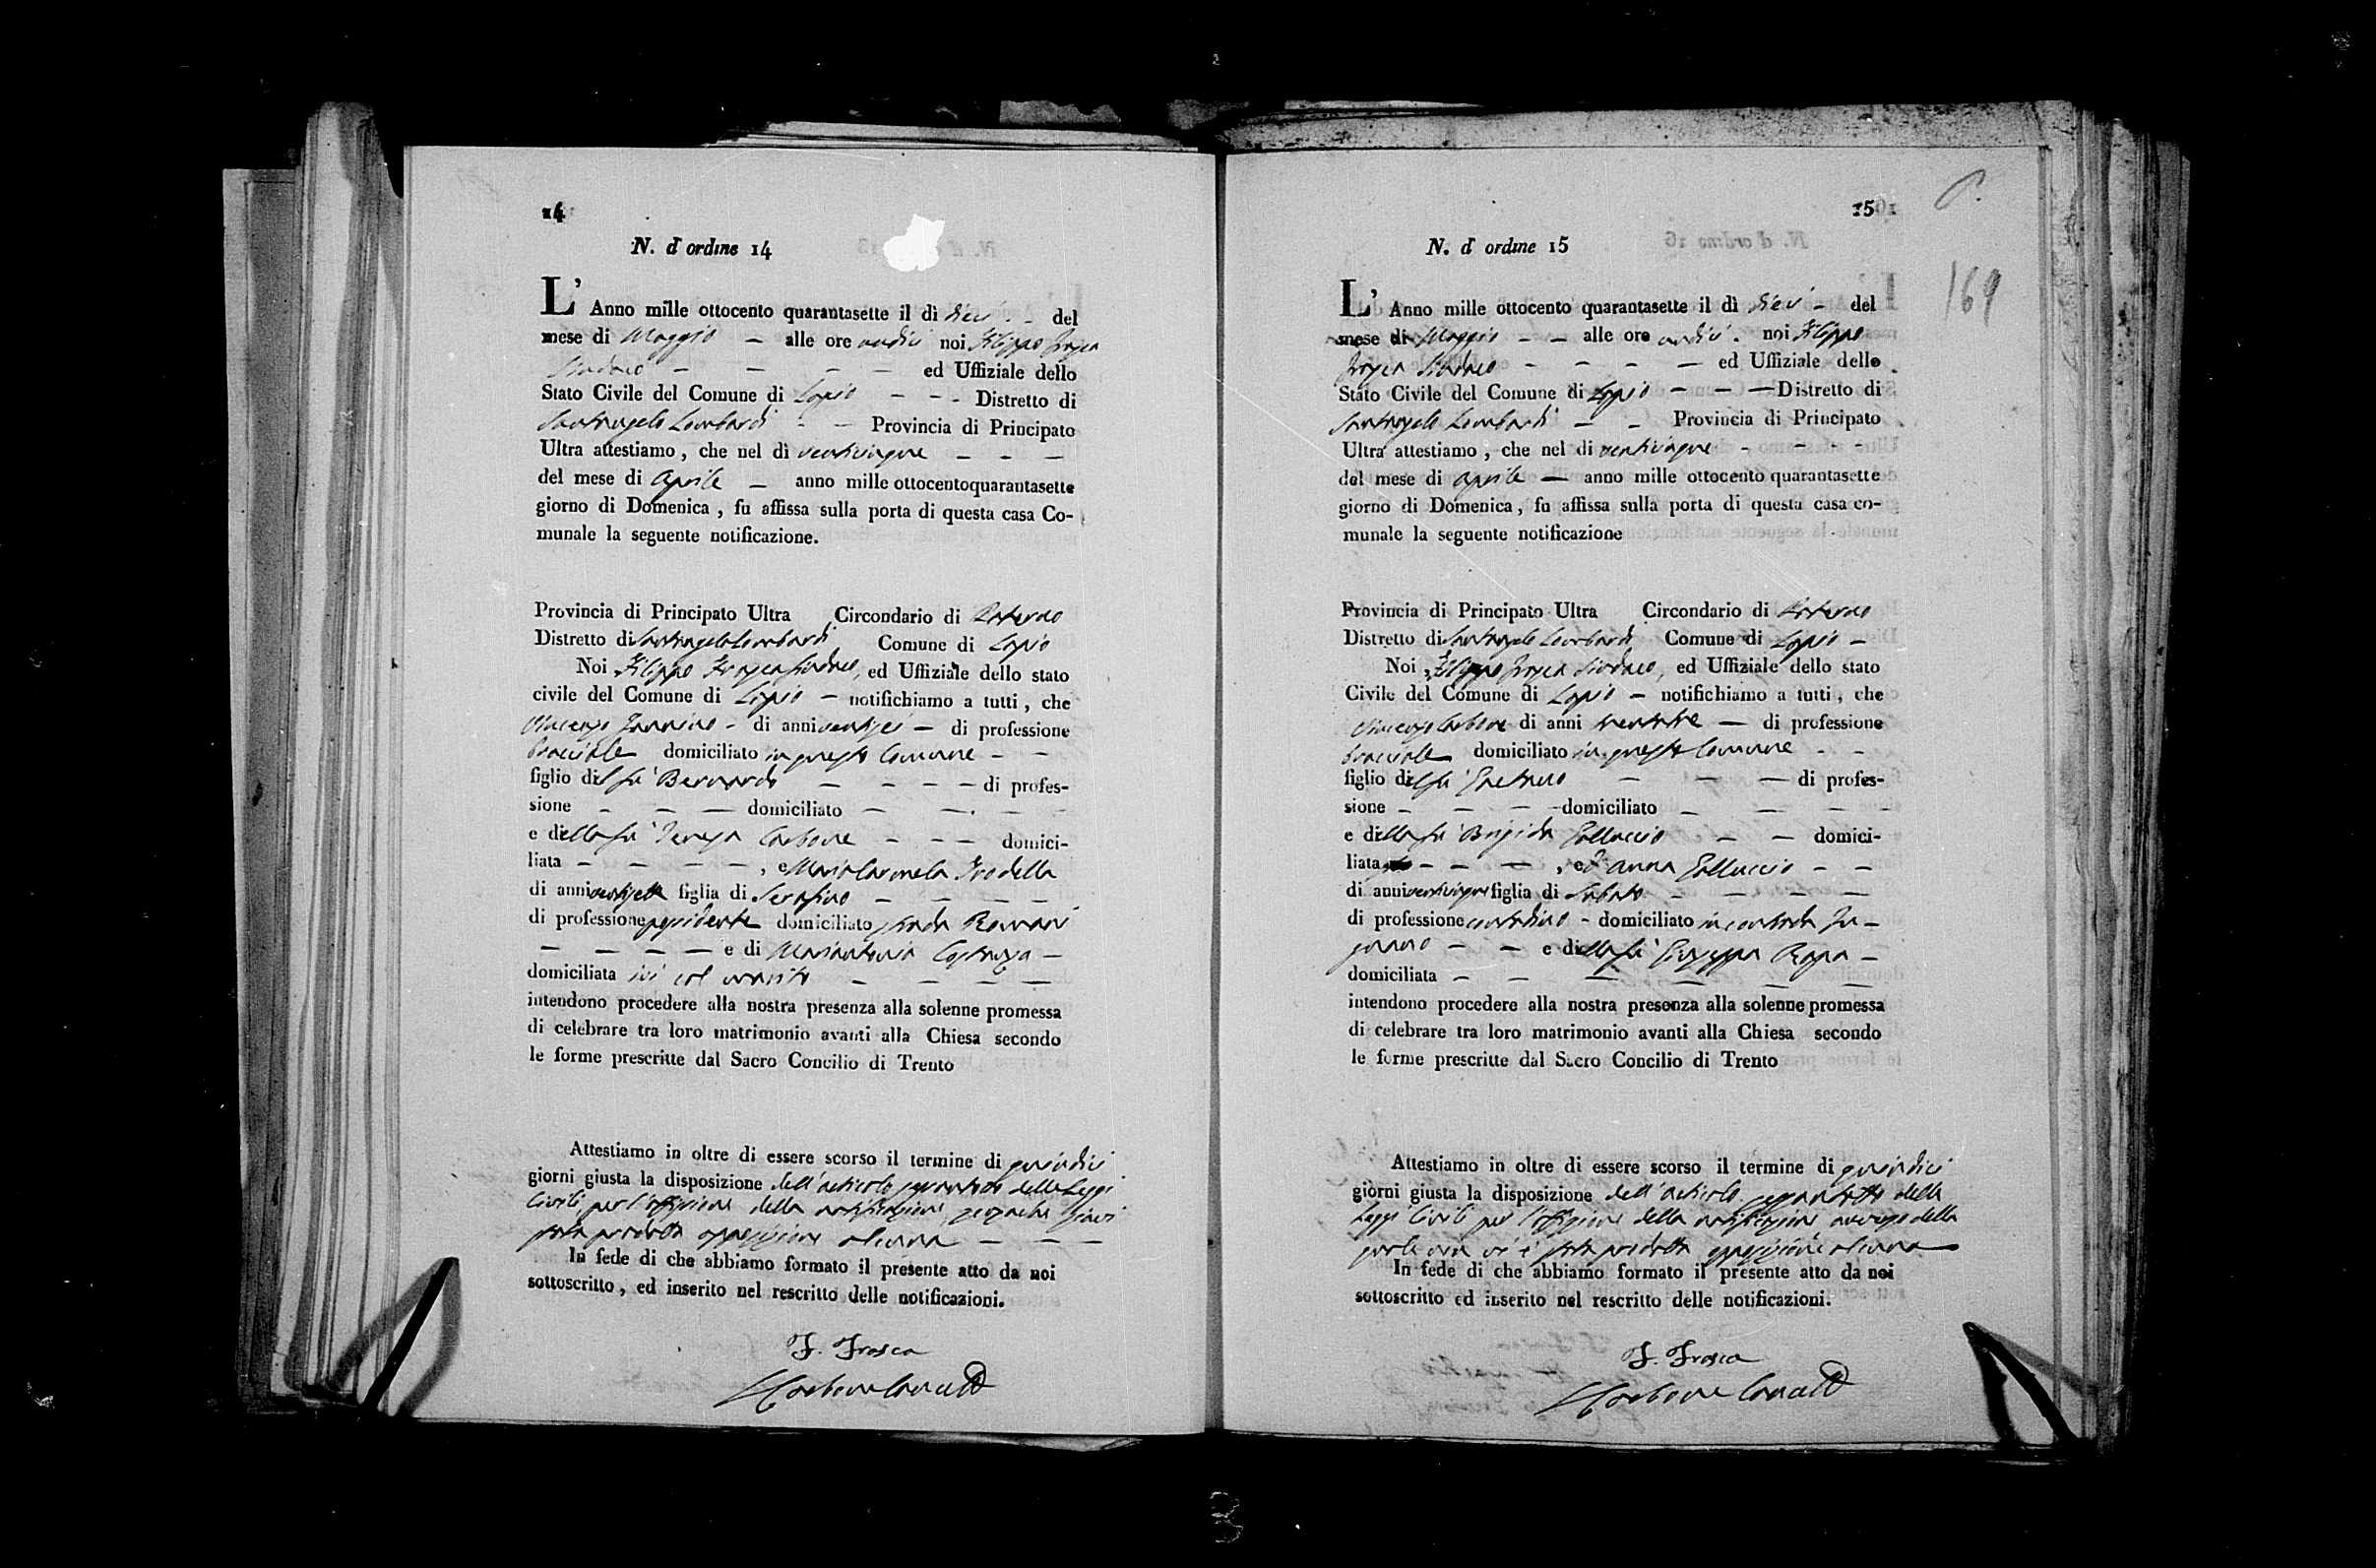 14
N. d'ordine 14
L' Anno mille ottocento quarantasette il dì dieci - - del
mese di Maggio — alle ore undici noi Filippo Frosca
Sindaco — — — — ed Uffiziale dello
Stato Civile del Comune di Lapio - - - Distretto di
Santangelo Lombardi - — Provincia di Principato
Ultra attestiamo, che nel dì venticinque — - —
del mese di Aprile — anno mille ottocentoquarantasette
giorno di Domenica, fu affissa sulla porta di questa casa Co-
munale la seguente notificazione.
Provincia di Principato Ultra Circondario di Paterno
Distretto di Santangelo Lombardi Comune di Lapio
Noi Filippo Frosca Sindaco, ed Uffiziale dello stato
civile del Comune di Lapio — notifichiamo a tutti, che
Vincenzo Iannino - di anni ventisei — di professione
bracciale domiciliato in questo Comune - -
figlio del fu Bernardo — - - — di profes-
sione - — — domiciliato — —
e della fu Teresa Carbone - - — domici-
liata - — — —, e Maria Carmela Trodella
di anni ventisette figlia di Serafino — — — —
di professione possidente domiciliato strada Romani
— — — — e di Mariantonia Costanza —
domiciliata ivi col marito — — — —
intendono procedere alla nostra presenza alla solenne promessa
di celebrare tra loro matrimonio avanti alla Chiesa secondo
le forme prescritte dal Sacro Concilio di Trento
Attestiamo in oltre di essere scorso il termine di quindici
giorni giusta la disposizione dell'articolo delle Leggi
Civili per l'affissione della notificazione, senzache siavi
stata prodotta opposizione alcuna — — —
In fede di che abbiamo formato il presente atto da noi
sottoscritto, ed inserito nel rescritto delle notificazioni.
F. Frosca
Carbone Canc
15
N. d'ordine 15
169
L' Anno mille ottocento quarantasette il dì dieci - del
mese di Maggio - — alle ore undici. noi Filippo
Frosca Sindaco - - - — ed Uffiziale dello
Stato Civile del Comune di Lapio - — — Distretto di
Santangelo Lombardi — - Provincia di Principato
Ultra attestiamo, che nel di venticinque - - -
del mese di Aprile — anno mille ottocento quarantasette
giorno di Domenica, fu affissa sulla porta di questa casa co-
munale la seguente notificazione
Provincia di Principato Ultra Circondario di Paterno
Distretto di Santangelo Lombardi Comune di Lapio —
Noi Filippo Frosca Sindaco, ed Uffiziale dello stato
Civile del Comune di Lapio — notifichiamo a tutti, che
Vincenzo Carbone di anni trentatre — di professione
bracciale domiciliato in questo Comune - -
figlio del fu Gaetano — — — di profes-
sione - — — - domiciliato — —
e della fu Brigida Galluccio — — domici-
liata - — —, ed Anna Galluccio - -
di anni venticinque figlia di Sabato - — —
di professione contadino - domiciliato in contrada
— — e della fu Giuseppa Reppa —
domiciliata — — — — — —
intendono procedere alla nostra presenza alla solenne promessa
di celebrare tra loro matrimonio avanti alla Chiesa secondo
le forme prescritte dal Sacro Concilio di Trento
Attestiamo in oltre di essere scorso il termine di quindici
giorni giusta la disposizione dell'articolo sessantotto delle
Leggi Civili per l'affissione della notificazione avverso della
quale non vi è stata prodotta opposizione alcuna —
In fede di che abbiamo formato il presente atto da noi
sottoscritto ed inserito nel rescritto delle notificazioni.
F. Frosca
Carbone Canc